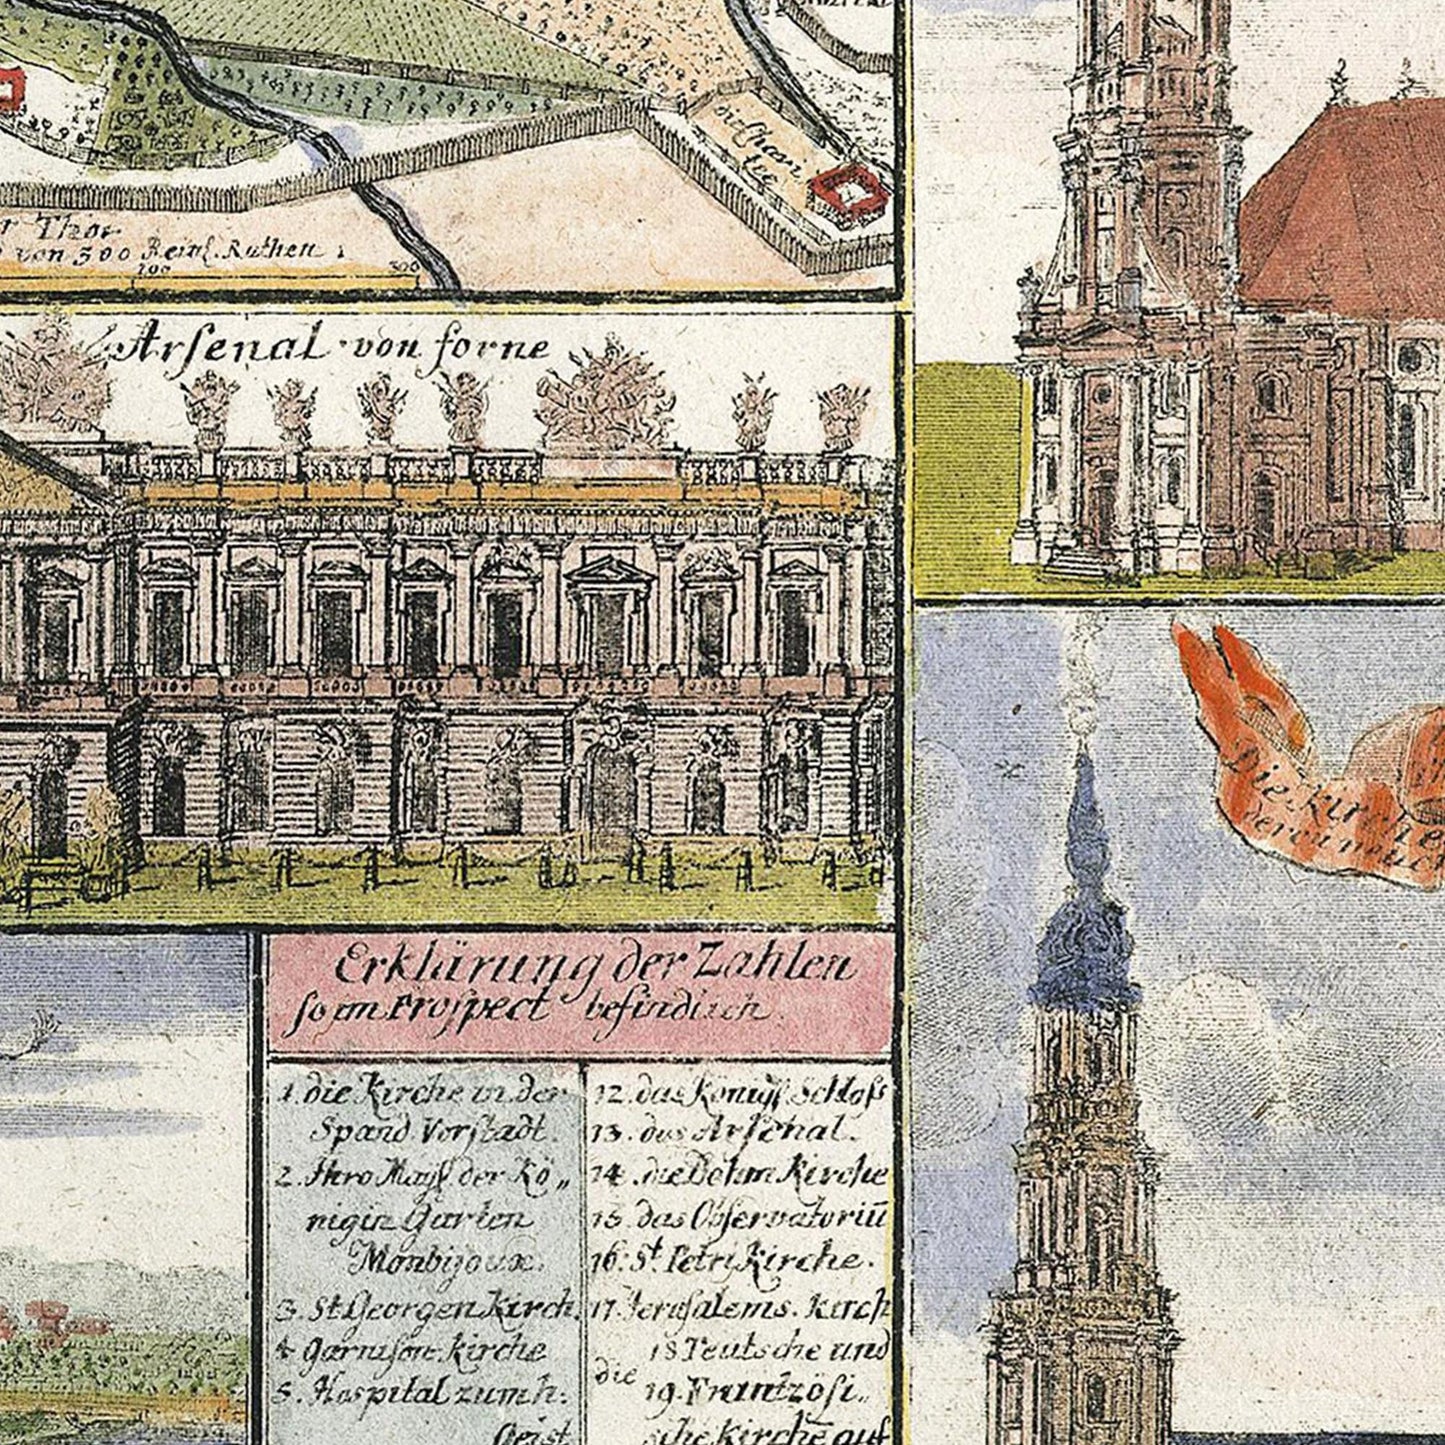 die Chari
tie
r Thor
von 300 Reinl. Ruthen
200
300
Arsenal von forne
Die Kirche
Erklärung der Zahlen
so im Prospect befindlich.
1. die Kirche in der
Spand. Vorstadt.
2. Ihro Mayst der Kö„
nigin Garten
Monbijoux.
3. St Georgen Kirch.
4 Garnison kirche
5. Hospital zum h:
Geist
12. das Königl Schloss
13. das Arsenal.
14. die Böhm Kirche
15. das Observatoriū
16. St. Petri Kirche.
17. Jerusalems. kirch
18 Teutsche und
die 19. Frantzösi„
sche Kirche auf